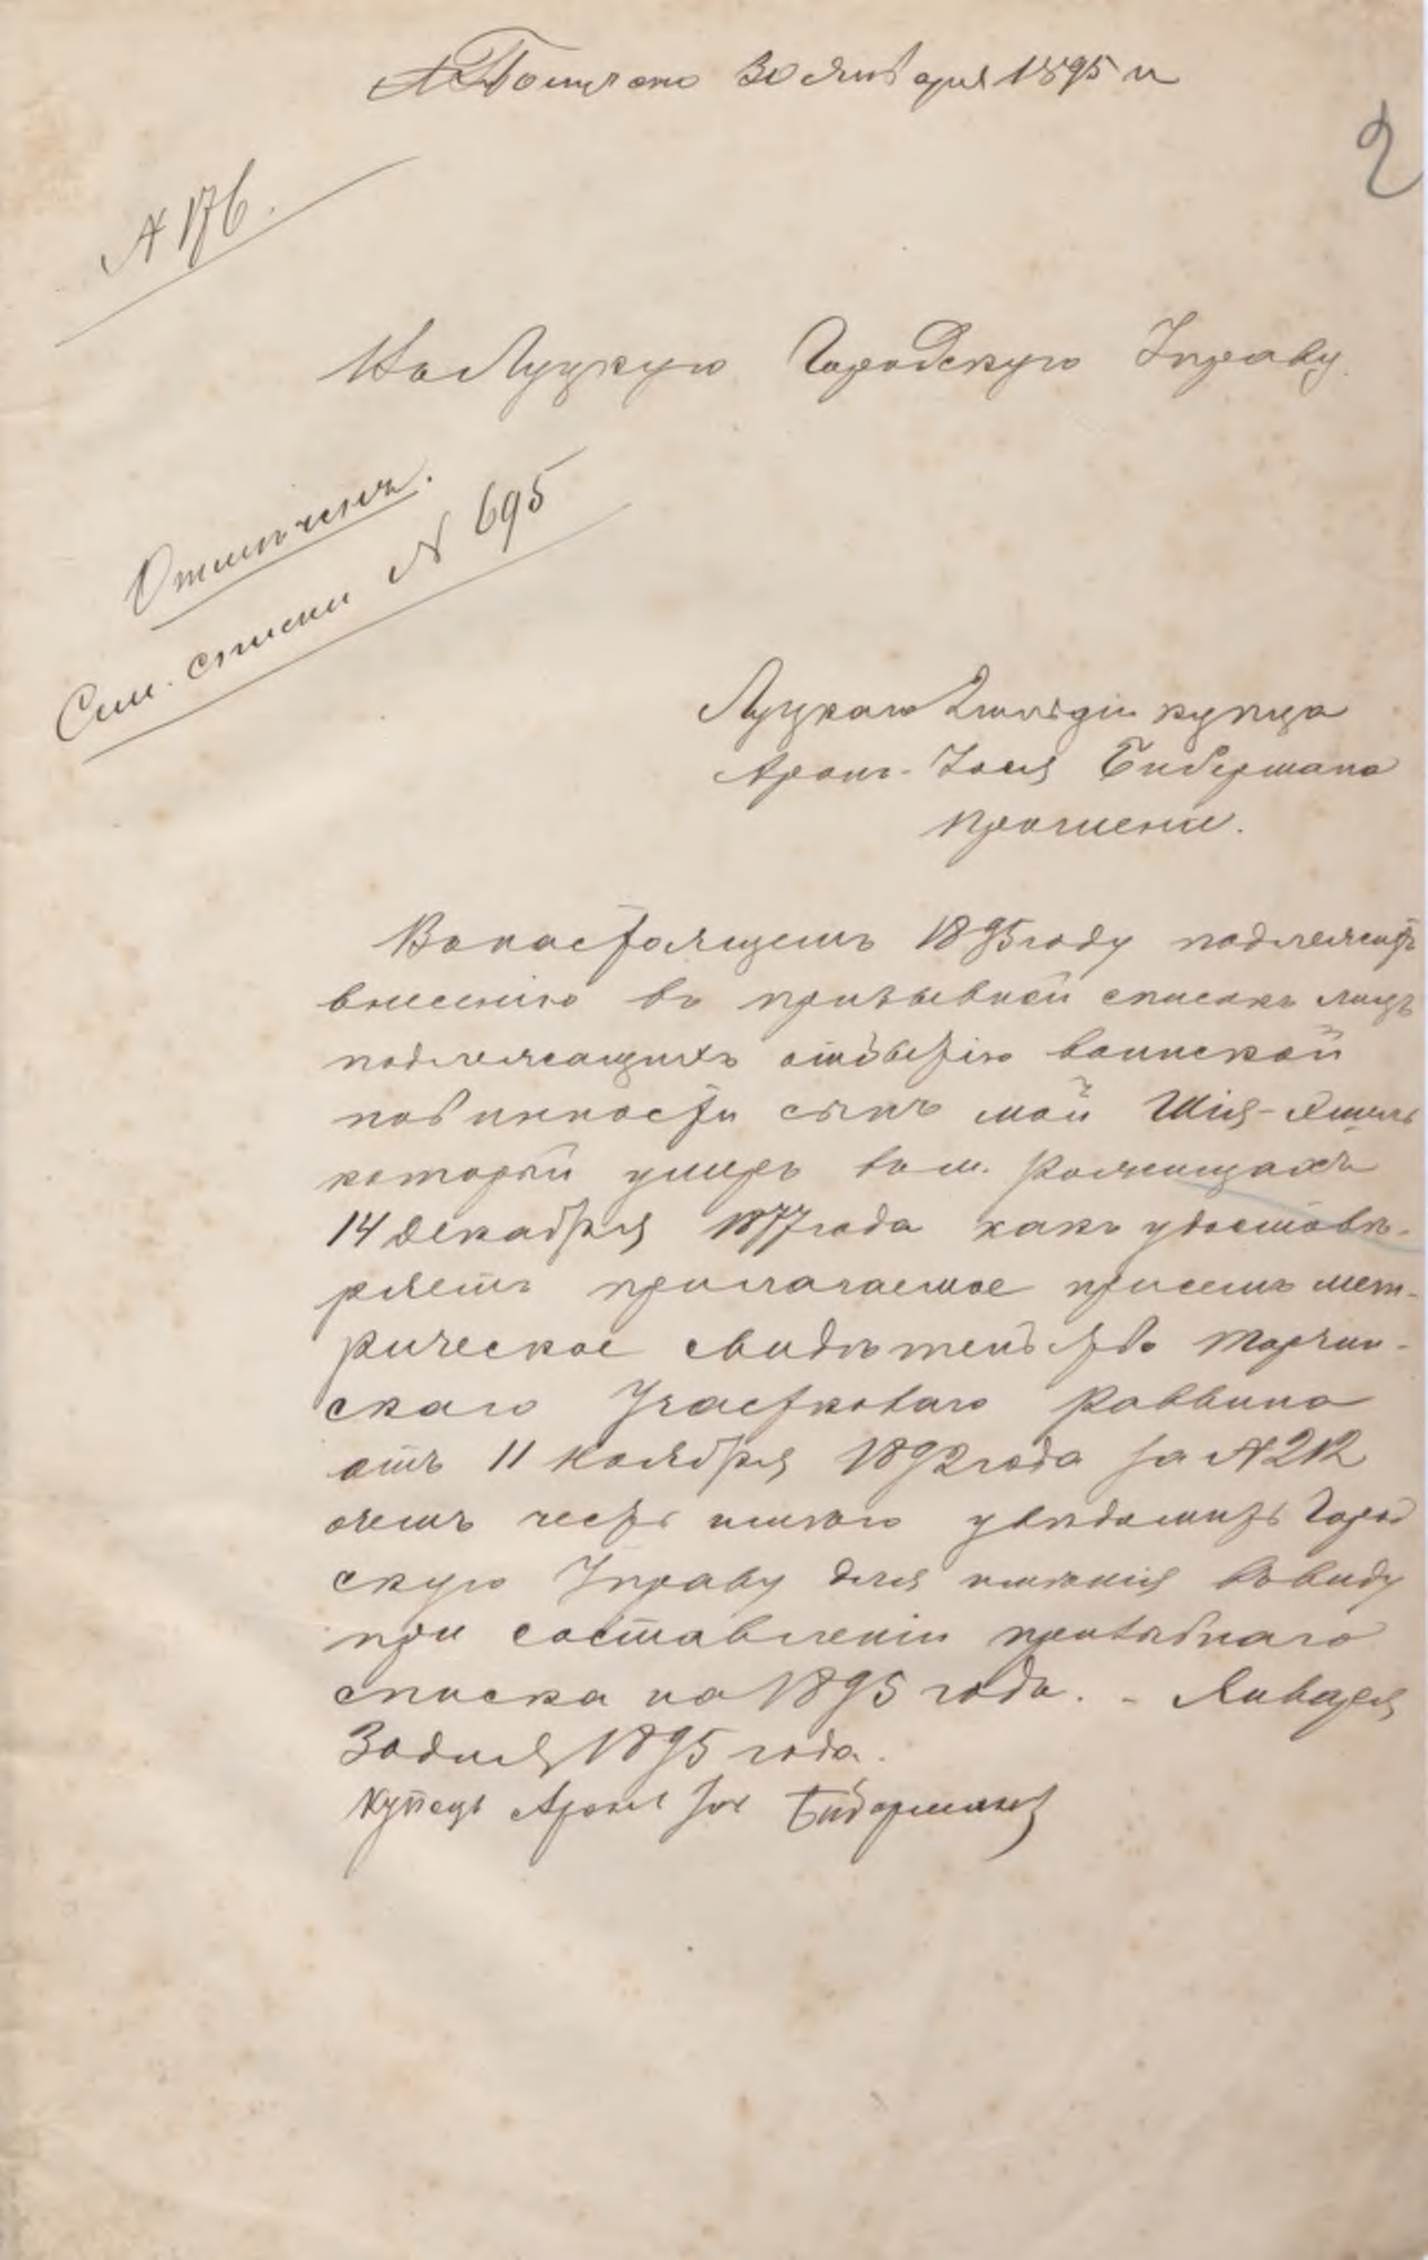 Получено 30 Января 1895 г
2
№ 176.
Въ Луцкую Городскую Управу.
Отмѣчень.
Сем. списки № 695
Луцкаго 2 гильдіи купца
Аронъ-Іося Бибермана
прошеніе.
Въ настоящемъ 1895 году подлежитъ
внесенію въ призывной списокъ лицъ
подлежащихъ отбытію воинской
повинности сынъ мой Шія-
который умеръ въ м. Рожищахъ
14 декабря 1877 года какъ удостовѣ-
ряетъ прилагаемое присемъ мет-
рическое свидѣтельство Торчин-
скаго Участковаго Раввина
отъ 11 Ноября 1892 года за № 212
очемъ честь имѣю увѣдомить Город
скую Управу для имѣнія ввиду
при составленіи призывнаго
списка на 1895 годъ. - Января
30 дня 1895 года.
Купецъ Аронъ Іос Биберманъ